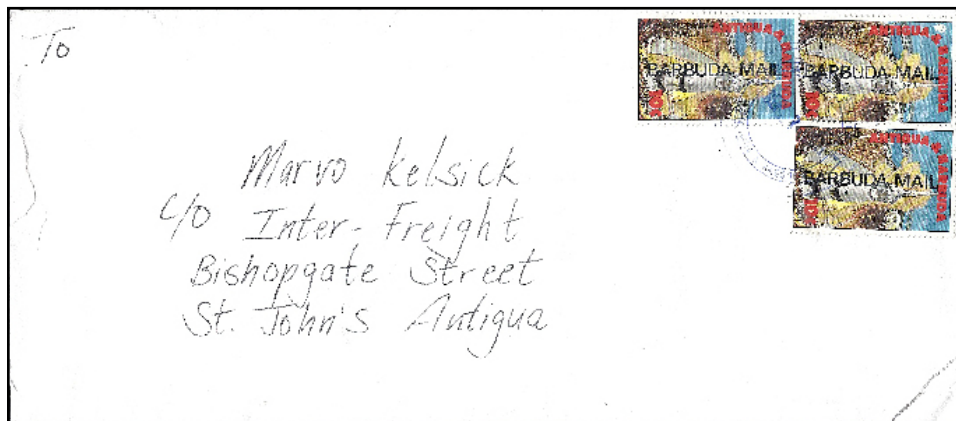 To
ANTIGUA & BARBUDA
BARBUDA MAIL
10¢
ANTIGUA & BARBUDA
BARBUDA MAIL
10¢
ANTIGUA & BARBUDA
BARBUDA MAIL
10¢
Marvo Kelsick
c/o Inter-Freight
Bishopgate Street
St. John's Antigua